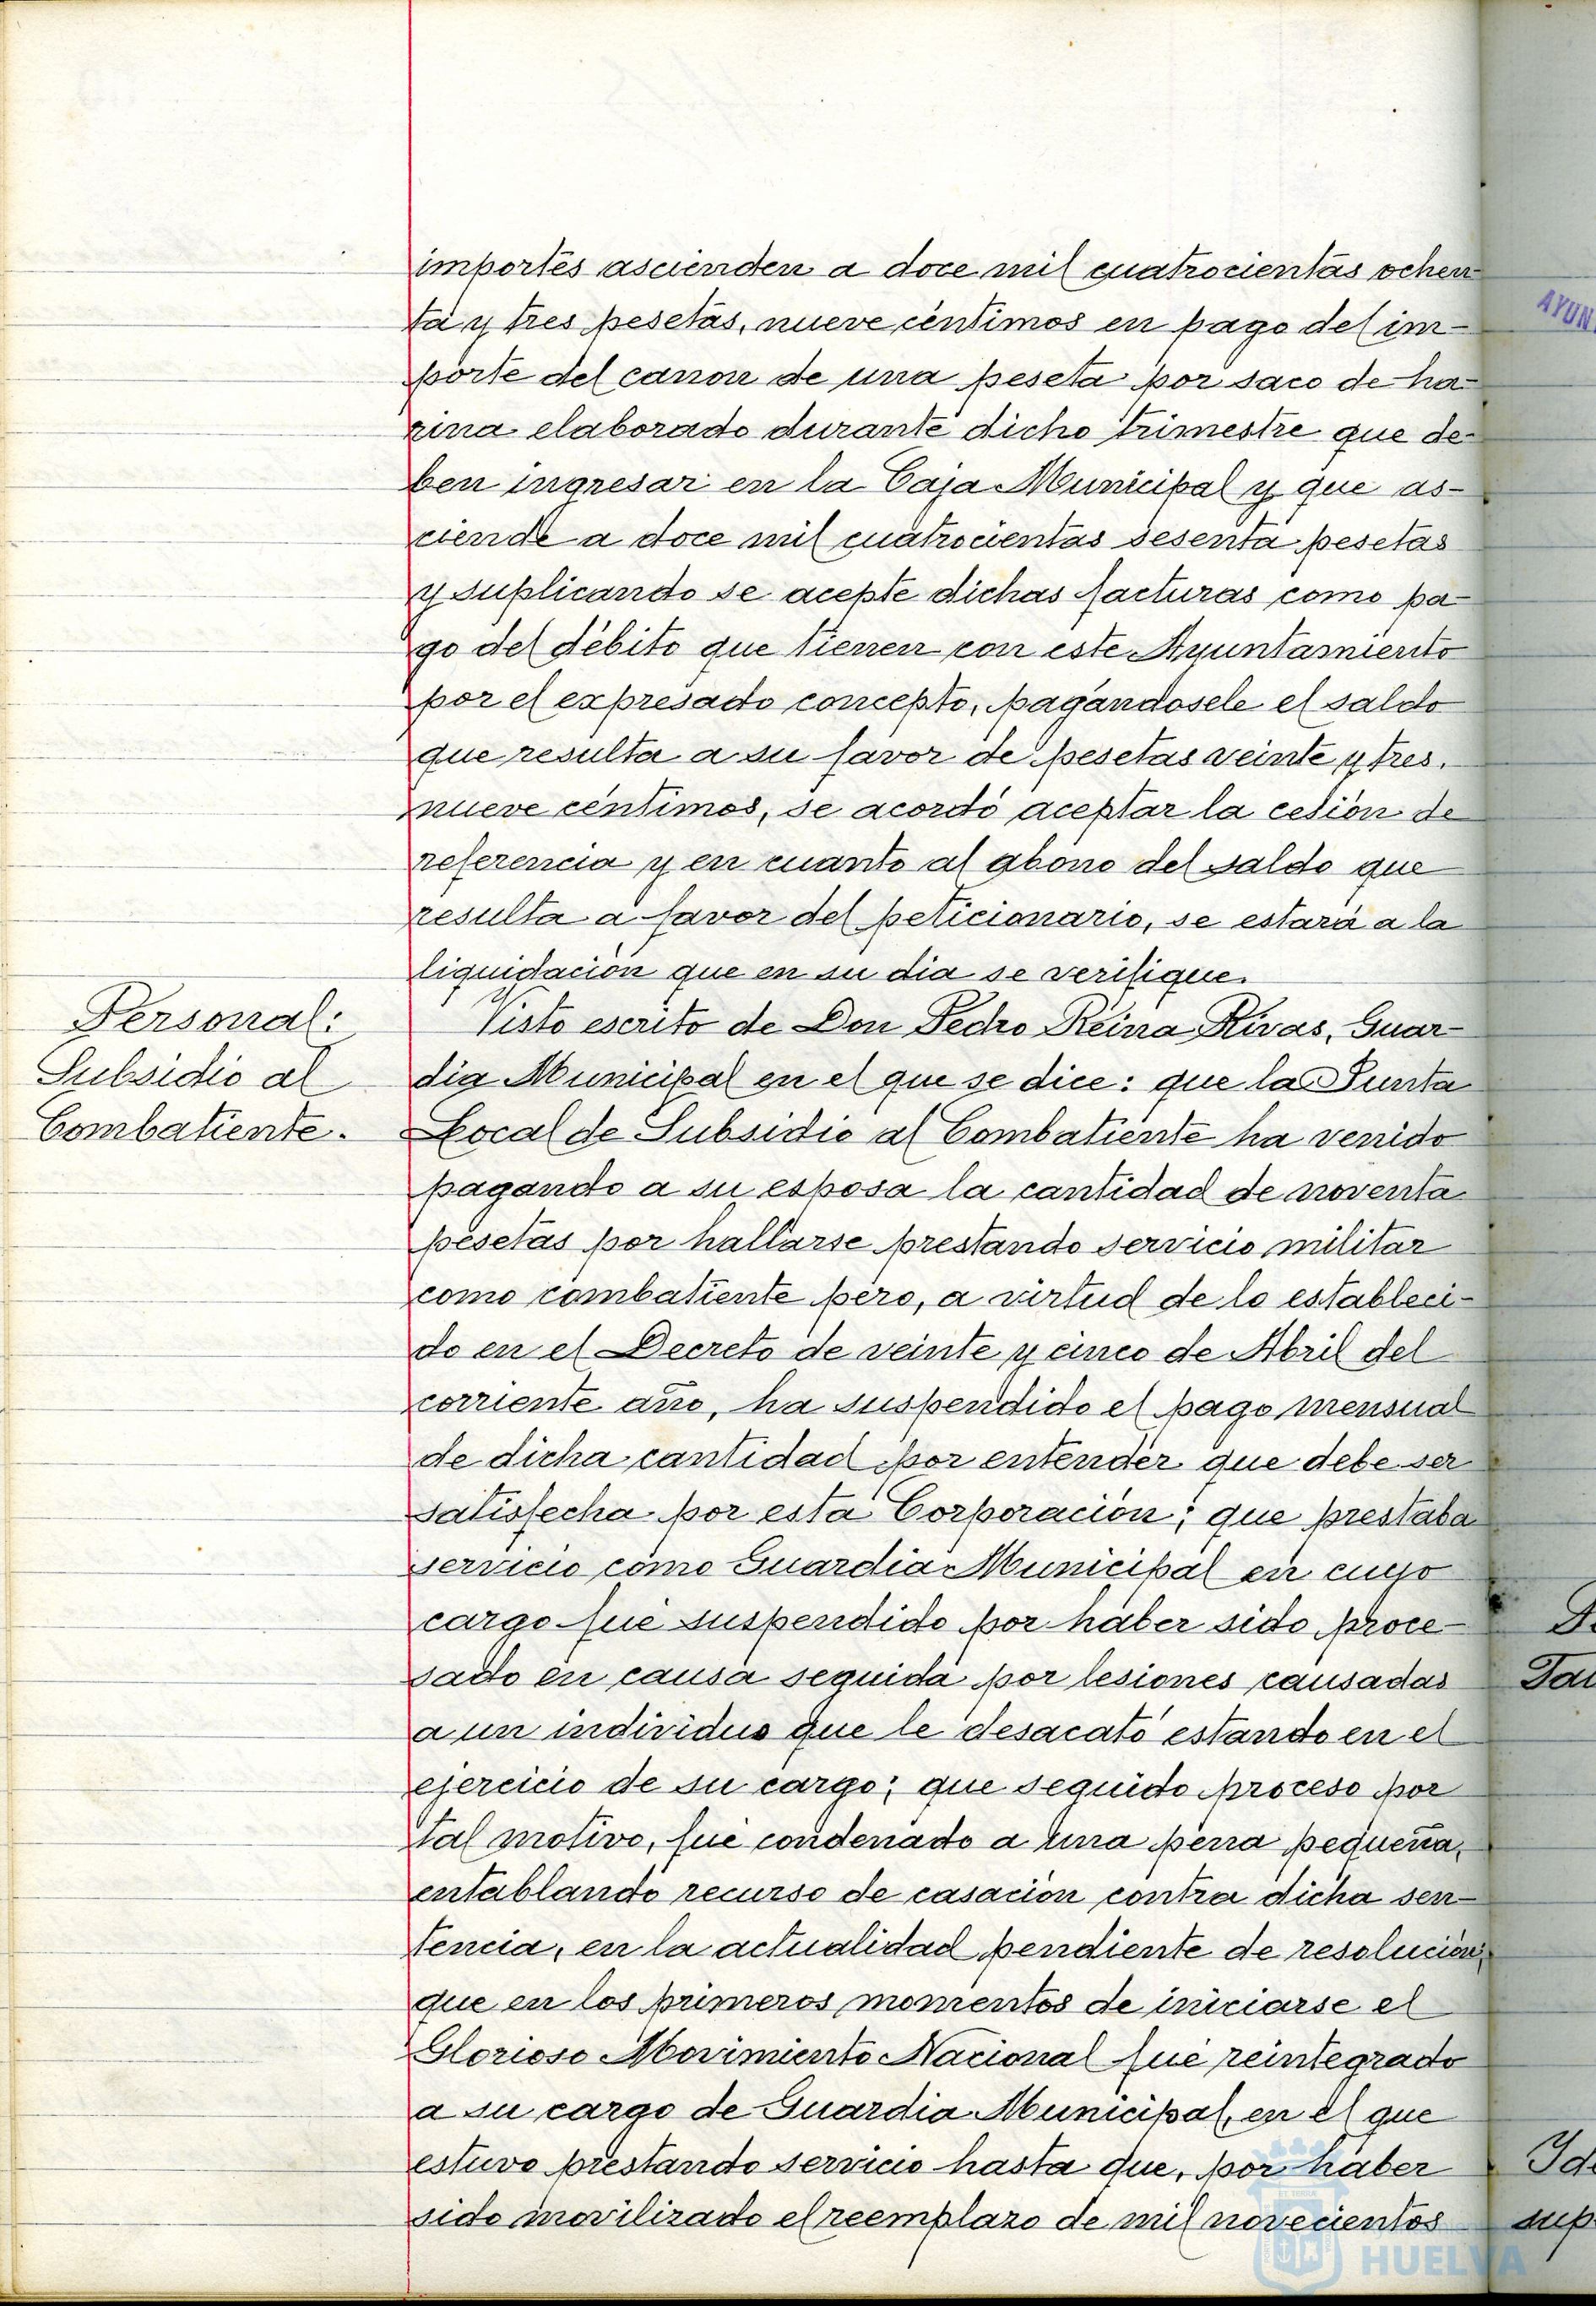 importes ascienden a doce mil cuatrocientas ochen
ta y tres pesetas, nueve céntimos en pago del im-
porte del canon de una peseta por saco de ha-
rina elaborado durante dicho trimestre que de-
ben ingresar en la Caja Municipal y que as-
ciende a doce mil cuatrocientas sesenta pesetas
y suplicando se acepte dichas facturas como pa-
go del débito que tienen con este Ayuntamiento
por el expresado concepto, pagándosele el saldo
que resulta a su favor de pesetas veinte y tres,
nueve céntimos, se acordó aceptar la cesión de
referencia y en cuanto al abono del saldo que
resulta a favor del peticionario, se estará a la
liquidación que en su dia se verifique.
Personal:
Subsidio al
Combatiente.
Visto escrito de Don Pedro Reina Rivas, Guar-
dia Municipal en el que se dice: que la Junta
Local de Subsidio al Combatiente ha venido
pagando a su esposa la cantidad de noventa
pesetas por hallarse prestando servicio militar
como combatiente pero, a virtud de lo estableci-
do en el Decreto de veinte y cinco de Abril del
corriente año, ha suspendido el pago mensual
de dicha cantidad por entender que debe ser
satisfecha por esta Corporación; que prestaba
servicio como Guardia Municipal en cuyo
cargo fué suspendido por haber sido proce-
sado en causa seguida por lesiones causadas
a un individuo que le desacató estando en el
ejercicio de su cargo; que seguido proceso por
tal motivo, fué condenado a una pena pequeña,
entablando recurso de casación contra dicha sen-
tencia, en la actualidad pendiente de resolución;
que en los primeros momentos de iniciarse el
Glorioso Movimiento Nacional fué reintegrado
a su cargo de Guardia Municipal, en el que
estuvo prestando servicio hasta que, por haber
sido movilizado el reemplazo de mil novecientos
AYUN
Id
sup
HUELVA